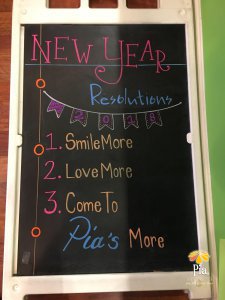 NEW YEAR
Resolutions
2018
1. Smile More
2. Love More
3. Come To
Pia's More
Pia